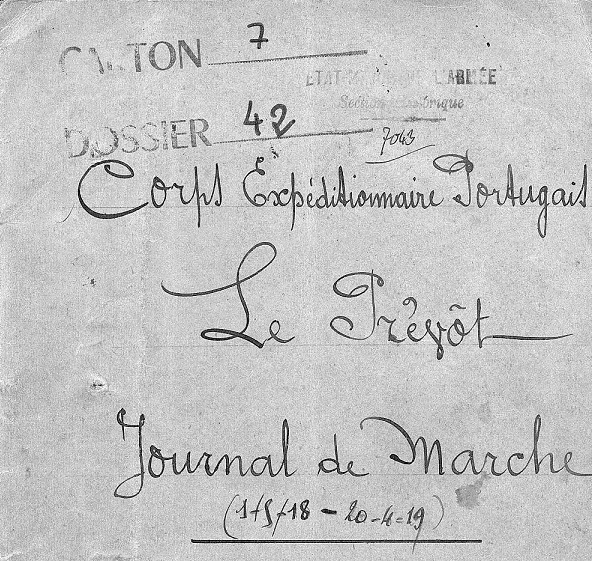 CARTON 7
ETAT-MAJOR DE L'ARMÉE
Section Historique
DOSSIER 42
7043
Corps Expéditionnaire Portugais
Le Prévôt
Journal de Marche
(1-5-18 - 20-4-19)